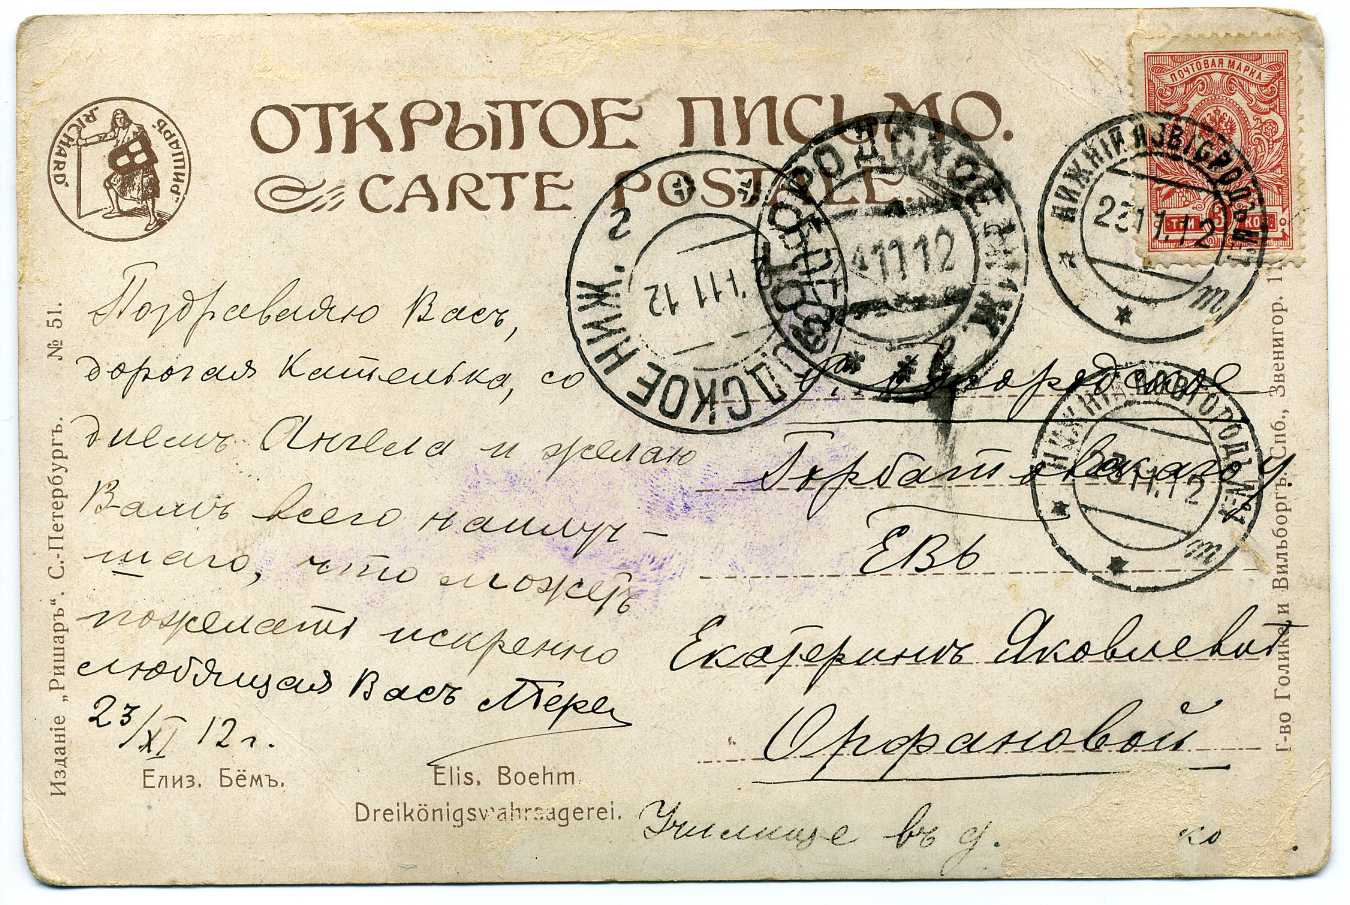 ОТКРЫТОЕ ПИСЬМО.
CARTE POSTALE.
РИШАРЪ
RICHARD
ПОЧТОВАЯ МАРКА
ТРИ 3 КОП.
НИЖНІЙ НОВГОРОДЪ №1
23 11.12
НИЖНІЙ НОВГОРОДЪ №1
23 11.12
БОГОРОДСКОЕ НИЖ.
11 12
БОГОРОДСКОЕ НИЖ. Г
11 12
Поздравляю Васъ,
дорогая Катенька, со
днемъ Ангела и желаю
Вамъ всего наилуч-
шаго, что можетъ
пожелать искренно
любящая Васъ
23/XI 12 г.
Богородское
Горбатовскаго у
ЕВБ
Екатеринѣ Яковлевнѣ
Орфановой
Училище въ д. ко
Елиз. Бёмъ.
Elis. Boehm.
Dreikönigswahrsagerei.
Изданіе „Ришаръ“. С.-Петербургъ. № 51.
Т-во Голике и Вильборгъ. Спб., Звенигор. 11